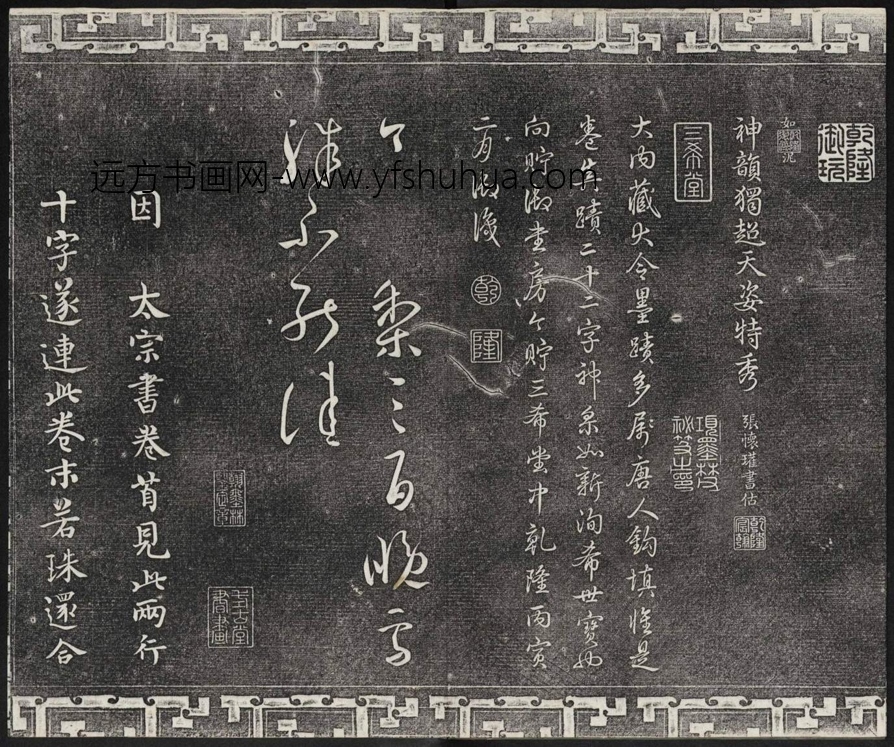 乾隆御玩
神韻獨超天姿特秀 張懷瓘書估
三希堂
項墨林祕笈之印
大內藏大令墨蹟多屬唐人鉤填惟是
卷真蹟二十二字神采如新洵希世寶也
向貯御書房今貯三希堂中乾隆丙寅
二月御識 乾 隆
今 梨三百晚雪
殊不能佳
因 太宗書卷首見此兩行
十字遂連此卷末若珠還合
远方书画网-www.yfshuhua.com